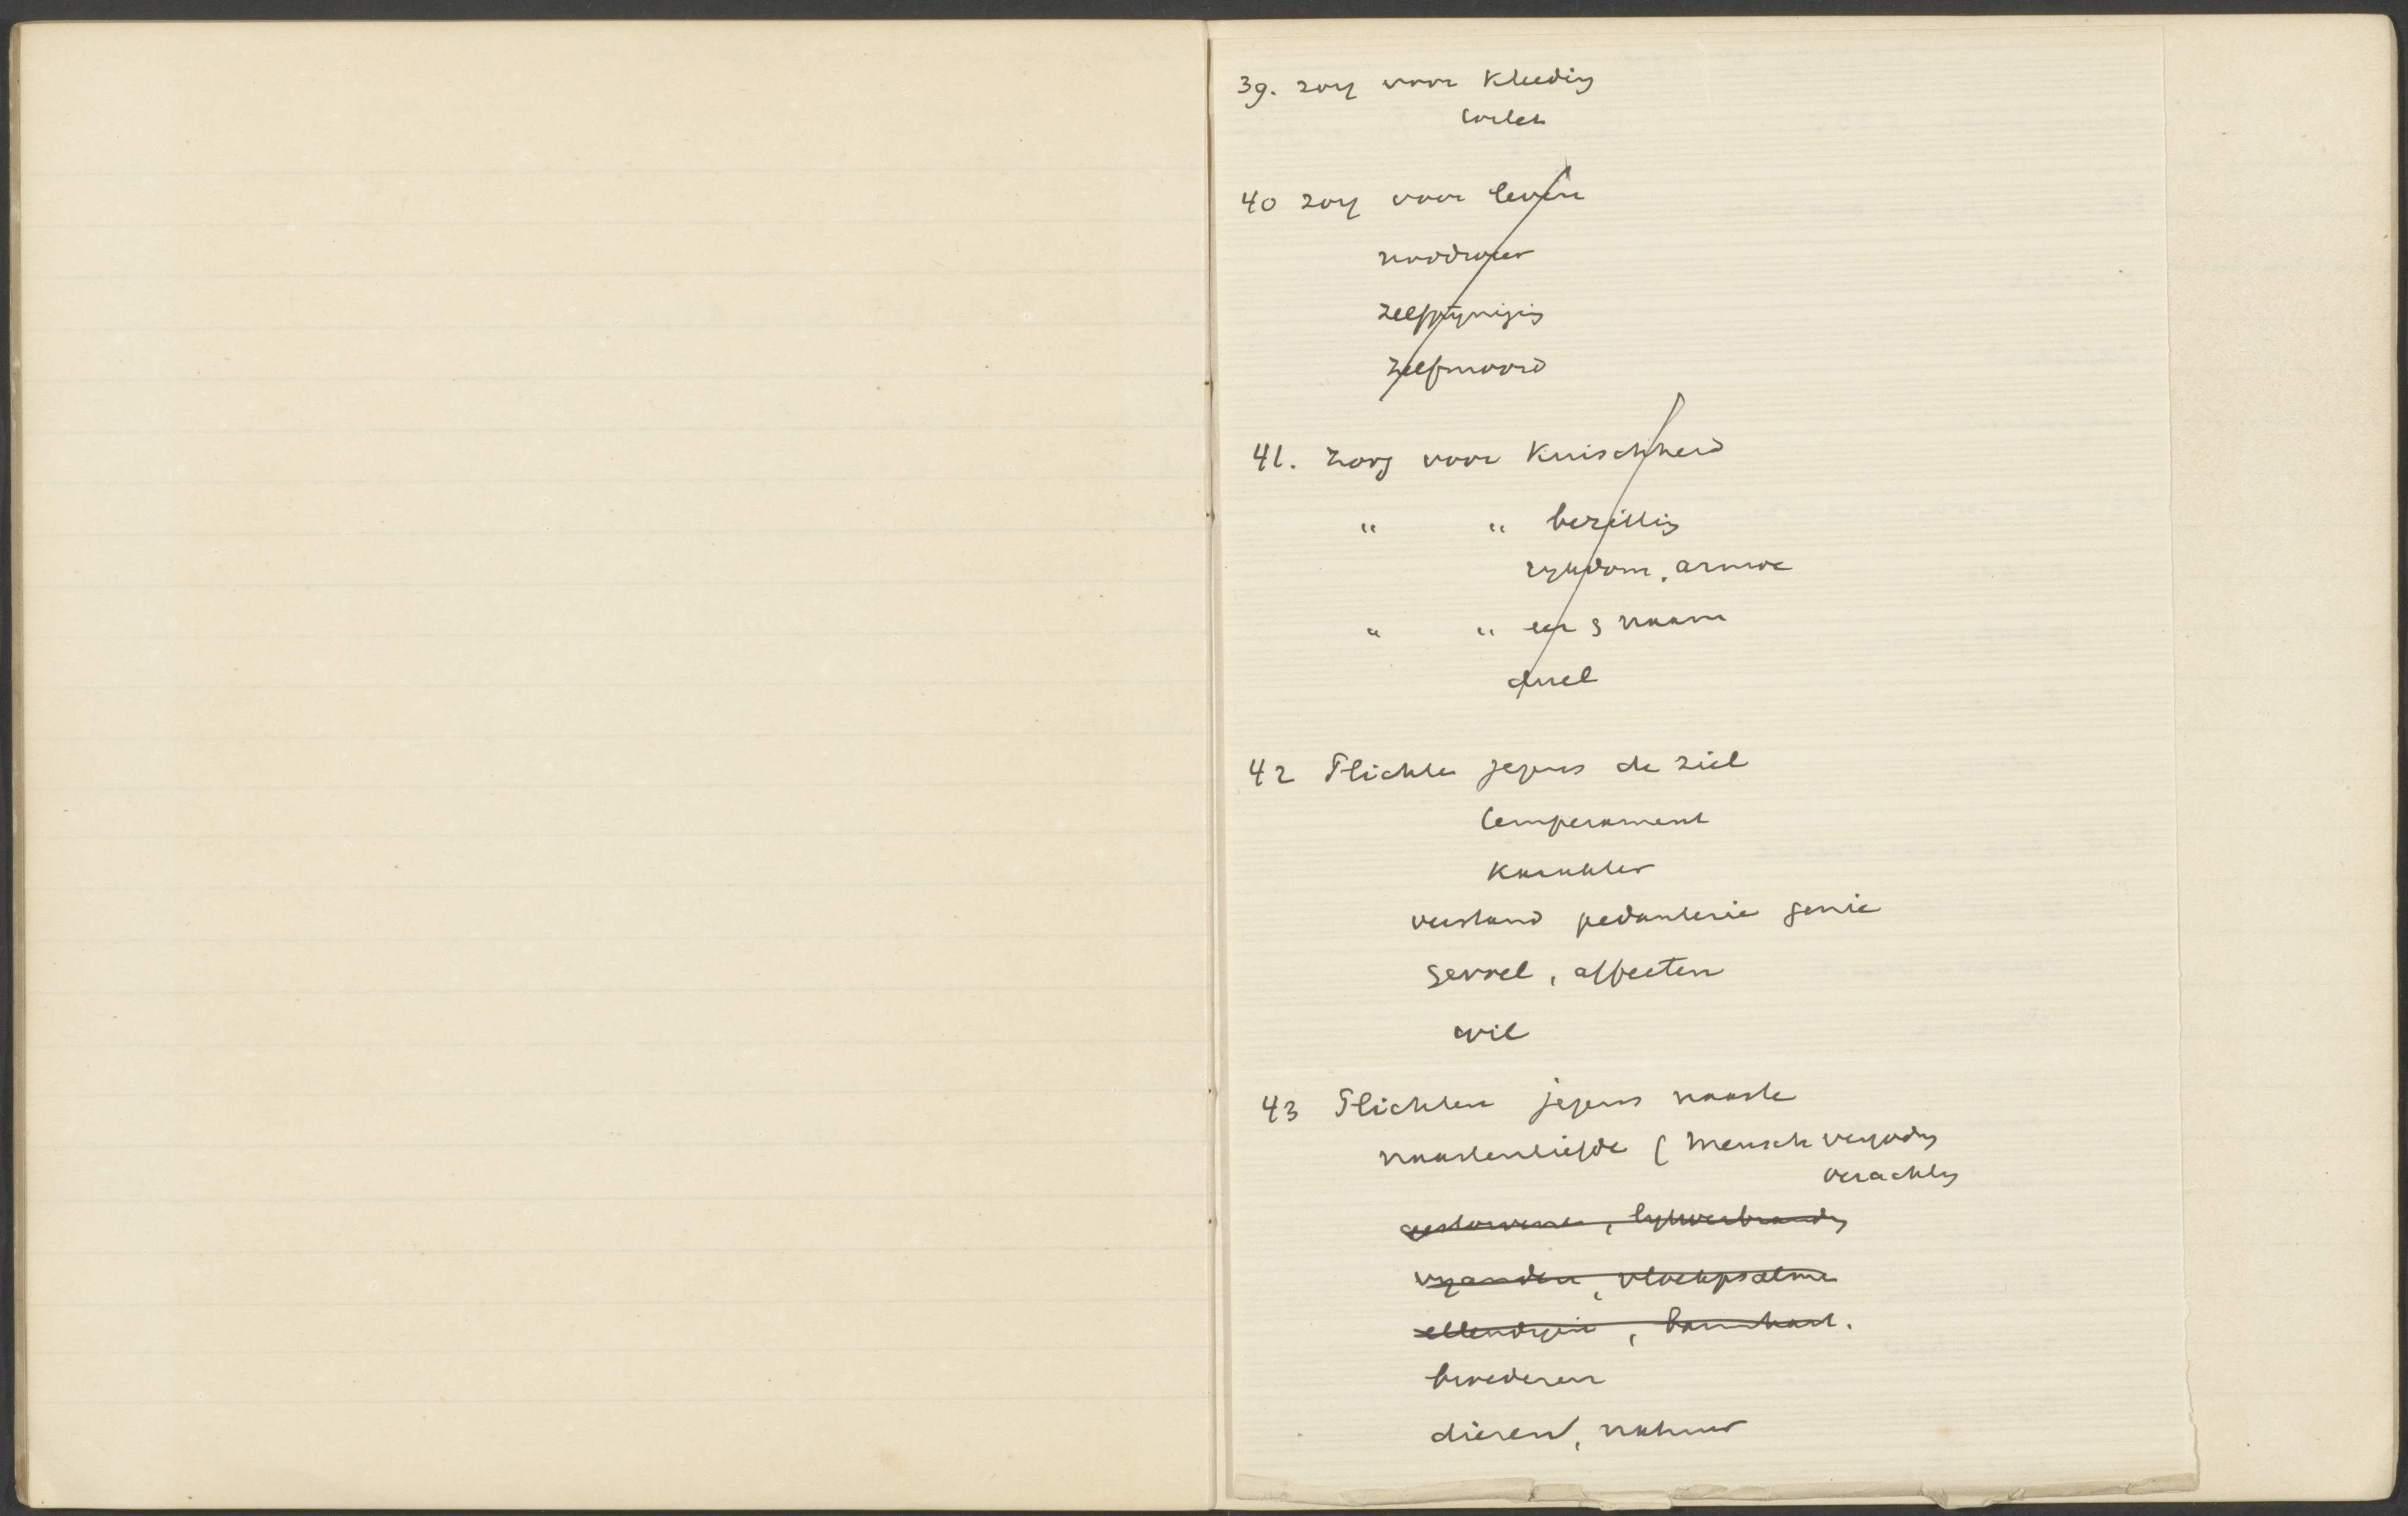 39. zorg voor Kleeding
toilet
40 zorg voor leven
noodweer
zelfpijniging
zelfmoord
41. zorg voor Kuischheid
" " bezitting
rijkdom, armoe
" " eer & naam
duel
42 Plichten jegens de ziel
temperament
Karakter
verstand pedanterie genie
gevoel, affecten
wil
43 Plichten jegens naaste
naastenliefde (Menschvergoding
verachting
gestorvenen, lijkverbranding
vijanden, vloekpsalmen
ellendigen, barmhart.
broederen
dieren, natuur